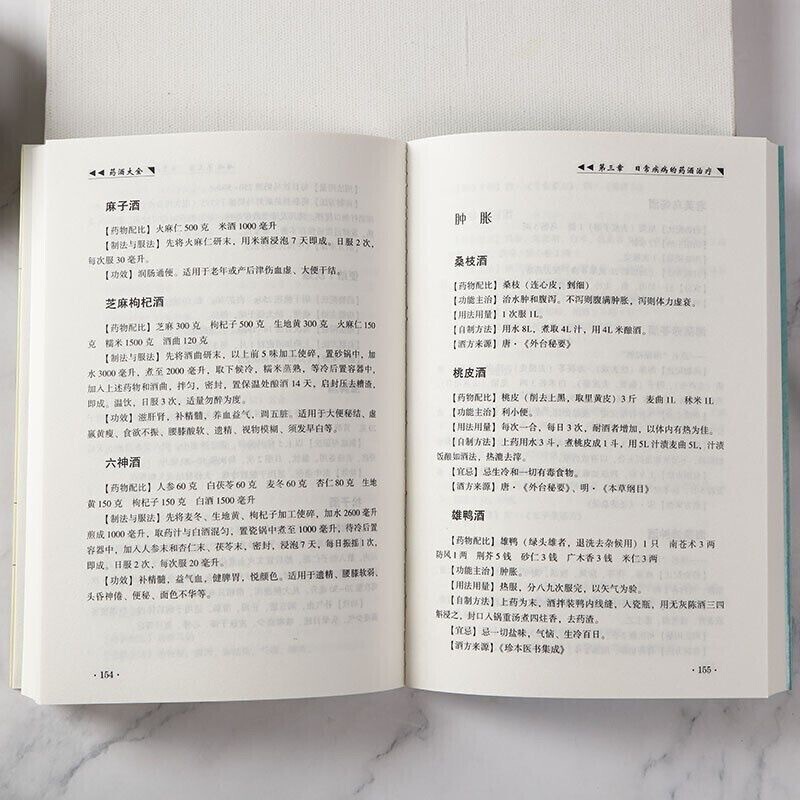 药酒大全
麻子酒
【药物配比】火麻仁 500 克 米酒 1000 毫升
【制法与服法】先将火麻仁研末，用米酒浸泡 7 天即成。日服 2 次，
每次服 30 毫升。
【功效】润肠通便。适用于老年或产后津伤血虚、大便干结。
芝麻枸杞酒
【药物配比】芝麻 300 克 枸杞子 500 克 生地黄 300 克 火麻仁 150
克 糯米 1500 克 酒曲 120 克
【制法与服法】先将酒曲研末，以上前 5 味加工使碎，置砂锅中，加
水 3000 毫升，煮至 2000 毫升，取下候冷，糯米蒸熟，等冷后置容器中，
加入上述药物和酒曲，拌匀，密封，置保温处酿酒 14 天，启封压去糟渣，
即成。温饮，日服 3 次，适量勿醉为度。
【功效】滋肝肾，补精髓，养血益气，调五脏。适用于大便秘结、虚
羸黄瘦、食欲不振、腰膝酸软、遗精、视物模糊、须发早白等。
六神酒
【药物配比】人参 60 克 白茯苓 60 克 麦冬 60 克 杏仁 80 克 生地
黄 150 克 枸杞子 150 克 白酒 1500 毫升
【制法与服法】先将麦冬、生地黄、枸杞子加工使碎，加水 2600 毫升
煎成 1000 毫升，取药汁与白酒混匀，置瓷锅中煮至 1000 毫升，待冷后置
容器中，加入人参末和杏仁末、茯苓末，密封，浸泡 7 天，每日振摇 1 次，
即成。日服 2 次，每次服 20 毫升。
【功效】补精髓，益气血，健脾胃，悦颜色。适用于遗精、腰膝软弱、
头昏神倦、便秘、面色不华等。
· 154 ·
第三章 日常疾病的药酒治疗
肿 胀
桑枝酒
【药物配比】桑枝（连心皮，剉细）
【功能主治】治水肿和腹泻。不泻则腹满肿胀，泻则体力虚衰。
【用法用量】1 次服 1L。
【自制方法】用水 8L，煮取 4L 汁，用 4L 米酿酒。
【酒方来源】唐·《外台秘要》
桃皮酒
【药物配比】桃皮（削去上黑，取里黄皮）3 斤 麦曲 1L 秫米 1L
【功能主治】利小便。
【用法用量】每次一合，每日 3 次，耐酒者增加，以体内有热为佳。
【自制方法】上药用水 3 斗，煮桃皮成 1 斗，用 5L 汁渍麦曲 5L，汁渍
饭酿如酒法，热漉去滓。
【宜忌】忌生冷和一切有毒食物。
【酒方来源】唐·《外台秘要》、明·《本草纲目》
雄鸭酒
【药物配比】雄鸭（绿头雄者，退洗去杂候用）1 只 南苍术 3 两
防风 1 两 荆芥 5 钱 砂仁 3 钱 广木香 3 钱 米仁 3 两
【功能主治】肿胀。
【用法用量】热服，分八九次服完，以矢气为验。
【自制方法】上药为末，酒拌装鸭内线缝，入瓷瓶，用无灰陈酒三四
斛浸之，封口入锅重汤煮四炷香，去药渣。
【宜忌】忌一切盐味，气恼、生冷百日。
【酒方来源】《珍本医书集成》
· 155 ·